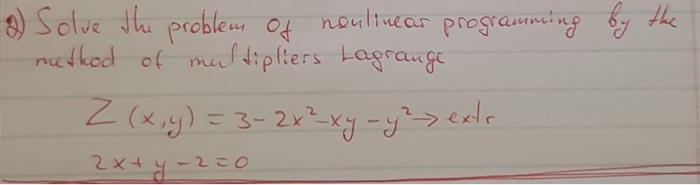 2) Solve the problem of nonlinear programming by the
method of multipliers Lagrange
Z (x,y) = 3-2x²-xy-y² → extr
2x+y-2=0